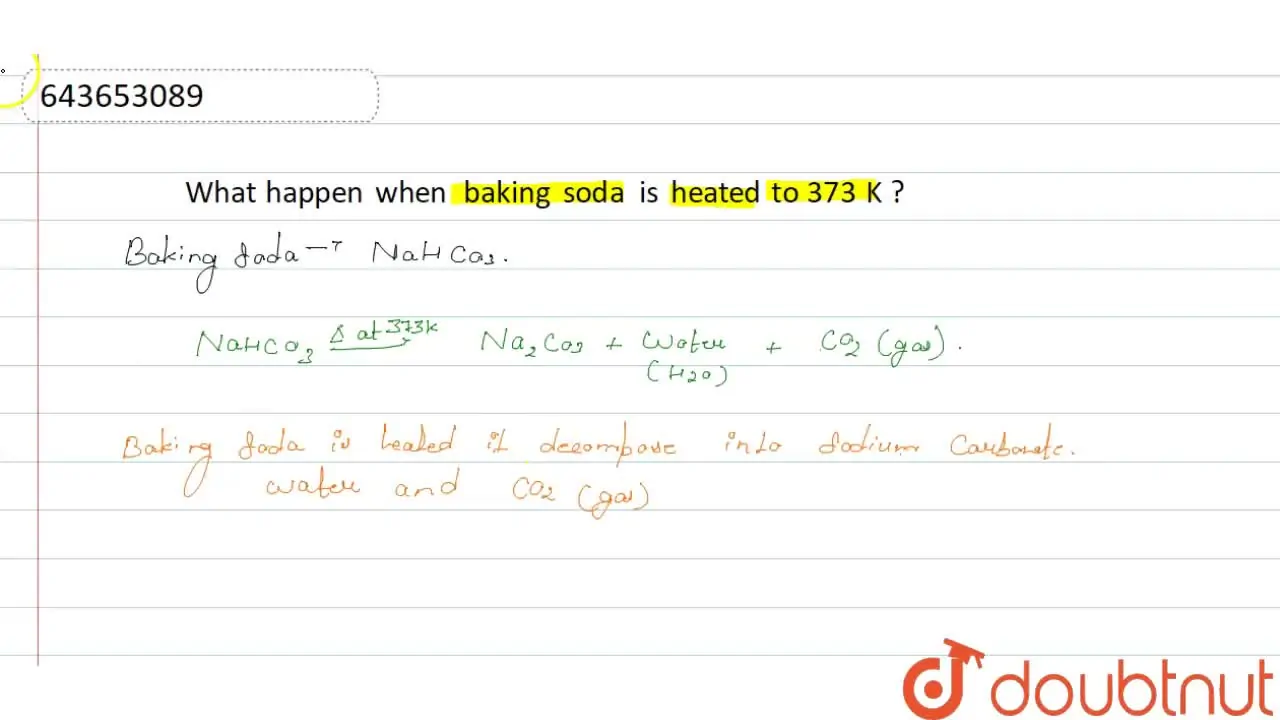 643653089
What happen when baking soda is heated to 373 K ?
Baking Soda → NaHCO3.
NaHCO3 Δ at 373k → Na2CO3 + Water (H2O) + CO2 (gas).
Baking Soda is heated it decompose into Sodium Carbonate.
water and CO2 (gas)
doubtnut